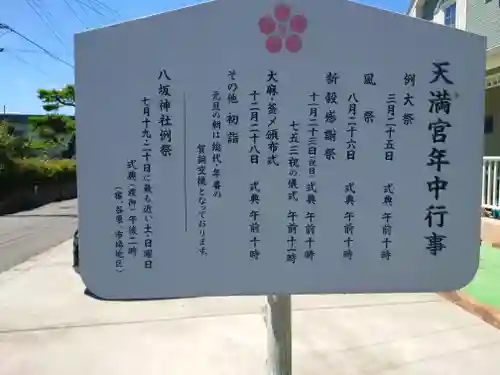 天満宮年中行事
例大祭
三月二十五日 式典 午前十時
風祭
八月二十六日 式典 午前十時
新穀感謝祭
十一月二十三日(祝日) 式典 午前十時
七五三祝の儀式 午前十一時
大麻・釜〆頒布式
十二月二十八日 式典 午前十時
その他 初詣
元旦の朝は、総代・年番の
賀詞交換となっております。
八坂神社例祭
七月十九・二十日に最も近い土・日曜日
式典(渡御)午後二時
(宿、谷原、市場地区)